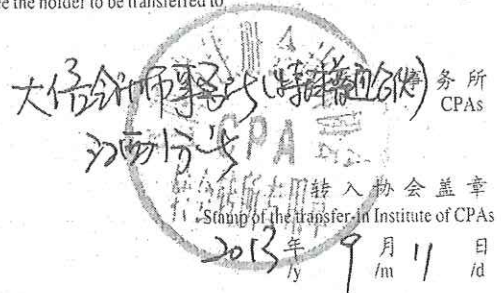 ee the holder to be transferred to
大信会计师事务所(特殊普通合伙) 务所
CPAs
分所
CPA
转入协会盖章
Stamp of the transfer-in Institute of CPAs
2013年 9月 11日
/y /m /d